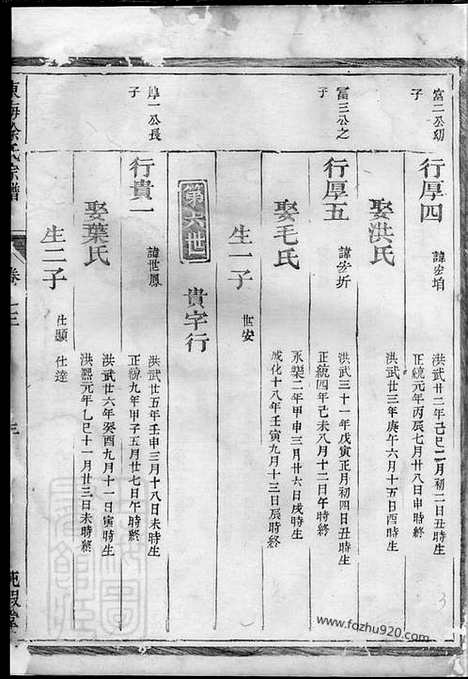 富二公幼
子
行厚四
諱宏埳
洪武廿二年己巳二月初二日丑時生
正統元年丙辰七月廿八日申時終
娶洪氏
洪武廿三年庚午六月十五日酉時生
富三公之
子
行厚五
諱宏折
洪武三十一年戊寅正月初四日丑時生
正統四年己未八月十二日午時終
娶毛氏
永樂二年甲申三月廿六日戌時生
成化十八年壬寅九月十三日辰時終
生一子
世安
第六世
貴字行
厚一公長
子
行貴一
諱世鳳
洪武廿五年壬申三月十八日未時生
正統九年甲子五月廿七日午時終
娶葉氏
洪武廿六年癸酉九月十一日寅時生
洪熙元年乙巳十一月廿三日未時終
生二子
仕顯 仕達
東海徐氏宗譜
卷之三
三
www.fozhu920.com
3